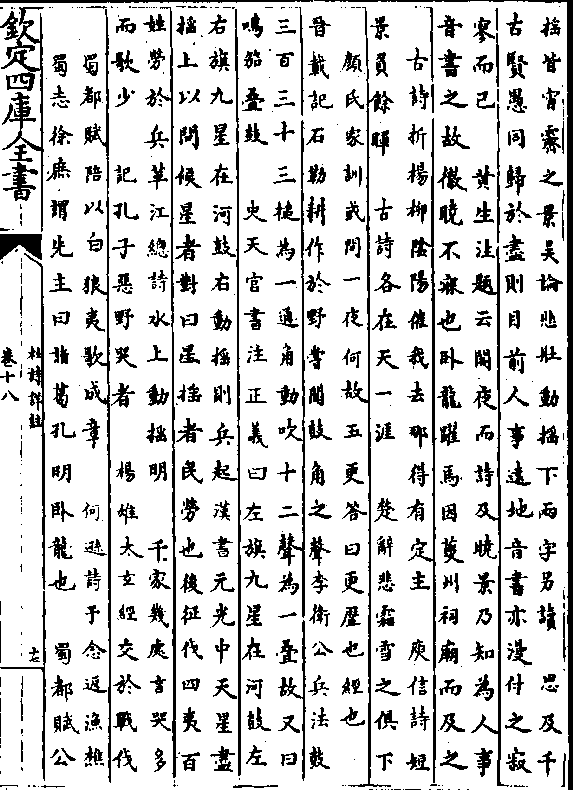 搖皆宵霽之景吳論悲壯動搖下兩字另讀　思及千
古賢愚同歸於盡則目前人事遠地音書亦漫付之寂
寥而已　黃生注題云閣夜而詩及曉景乃知為人事
音書之故徹曉不寐也卧龍躍馬因夔州祠廟而及之
古詩折楊柳陰陽催我去那得有定主　庾信詩短
景員餘暉　古詩各在天一涯　楚辭悲霜雪之俱下
顏氏家訓或問一夜何故五更答曰更歷也經也
晉載記石勒耕作於野嘗聞鼓角之聲李衛公兵法鼓
三百三十三槌為一通角動吹十二聲為一疊故又曰
鳴笳疊鼓　史天官書注正義曰左旗九星在河鼓左
右旗九星在河鼓右動搖則兵起漢書元光中天星盡
搖上以問候星者對曰星搖者民勞也後征伐四夷百
姓勞於兵革江總詩水上動搖明　千家幾處言哭多
而歌少　記孔子惡野哭者　楊雄太玄經交於戰伐
蜀都賦陪以白狼夷歌成章　何遜詩予念返漁樵
蜀志徐庶謂先主曰諸葛孔明卧龍也　蜀都賦公
欽定四庫全書
杜詩詳註
卷十八
十七